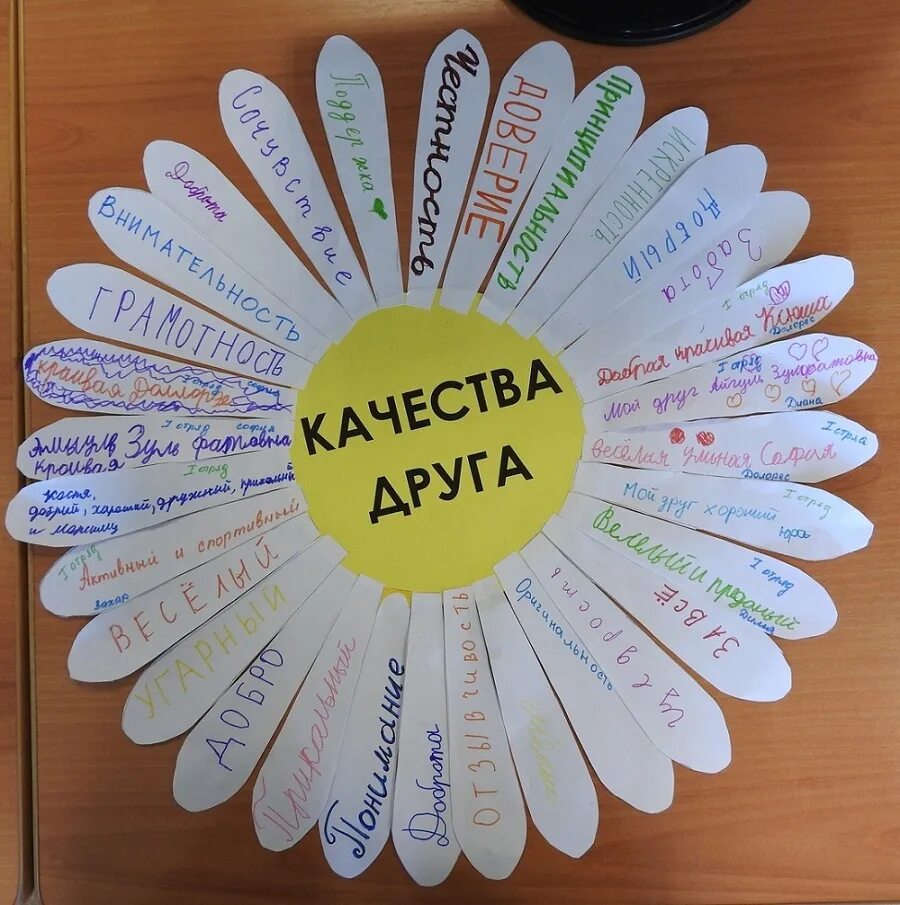 КАЧЕСТВА
ДРУГА
Честность
ДОВЕРИЕ
Принципиальность
ИСКРЕННОСТЬ
ДОБРЫЙ
Забота
I отряд
Добрая красивая Ксюша
Долорес
I отряд
Мой друг Айгуль Зумфатовна
Диана
I отряд
Весёлая умная София
Долорес
I отряд
Мой друг хороший
Юра
I отряд
Веселый и преданый
Дима
ЗА ВСЁ
Щедрость
Оригинальность
ОТЗЫВЧИВОСТЬ
Доброта
Понимание
Прикальный
ДОБРО
УГАРНЫЙ
ВЕСЁЛЫЙ
I отряд
Активный и спортивный
Захар
I отряд
Костя,
добрий, хороший, дружский, прикольный
и
I отряд софия
Зуль фатовна
I отряд софия
ГРАМОТНОСТЬ
ВНИМАТЕЛЬНОСТЬ
Доброта
Сочувствие
Поддержка